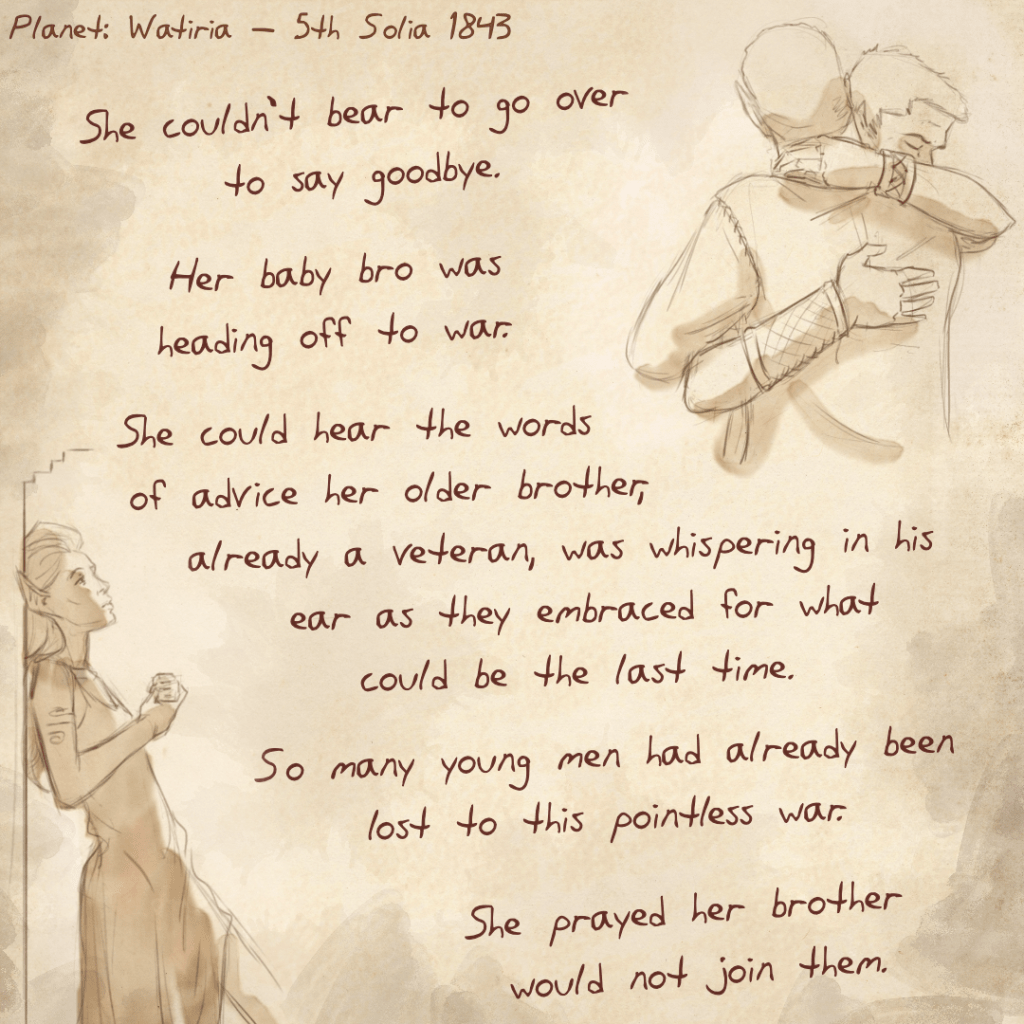 Planet: Watiria – 5th Solia 1843
She couldn't bear to go over
to say goodbye.
Her baby bro was
heading off to war.
She could hear the words
of advice her older brother,
already a veteran, was whispering in his
ear as they embraced for what
could be the last time.
So many young men had already been
lost to this pointless war.
She prayed her brother
would not join them.